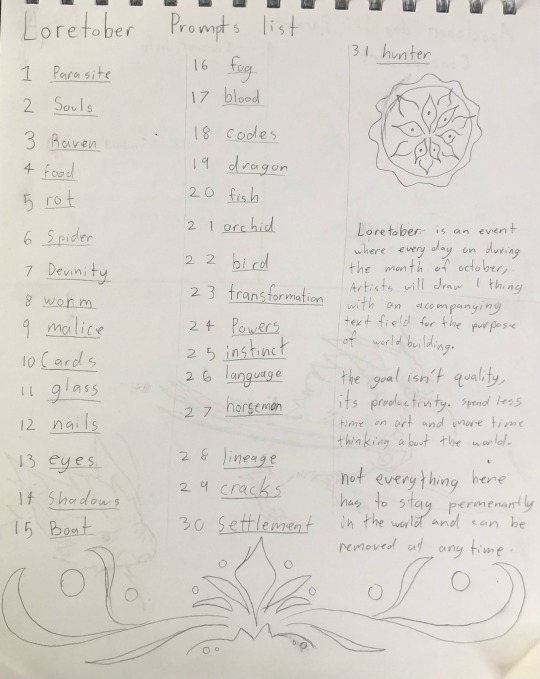 Loretober Prompts list
1 Parasite
2 Souls
3 Raven
4 Food
5 rot
6 Spider
7 Devinity
8 worm
9 malice
10 Cards
11 glass
12 nails
13 eyes
14 Shadows
15 Boat
16 fog
17 blood
18 codes
19 dragon
20 fish
21 orchid
22 bird
23 transformation
24 Powers
25 instinct
26 language
27 horseman
28 lineage
29 cracks
30 Settlement
31 hunter
Loretober is an event
where every day on during
the month of october,
Artists will draw 1 thing
with an acompanying
text field for the purpose
of world building.
the goal isn't quality,
its productivity. spend less
time on art and more time
thinking about the world.
not everything here
has to stay permenantly
in the world and can be
removed at any time.